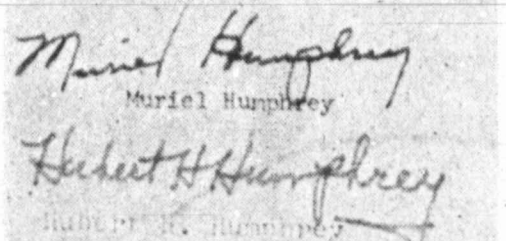 Muriel Humphrey
Muriel Humphrey
Hubert H Humphrey
Hubert H. Humphrey